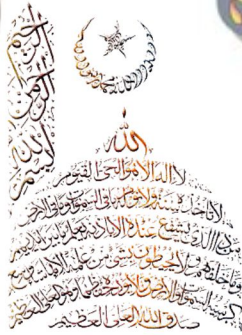 بسم الله الرحمن الرحيم
لا إله إلا الله محمد رسول الله
الله
لا إله إلا هو الحي القيوم
لا تأخذه سنة ولا نوم له ما في السموات وما في الأرض
من ذا الذي يشفع عنده إلا بإذنه يعلم ما بين أيديهم
وما خلفهم ولا يحيطون بشيء من علمه إلا بما شاء وسع
كرسيه السموات والأرض ولا يؤده حفظهما وهو العلي العظيم
صدق الله العلي العظيم